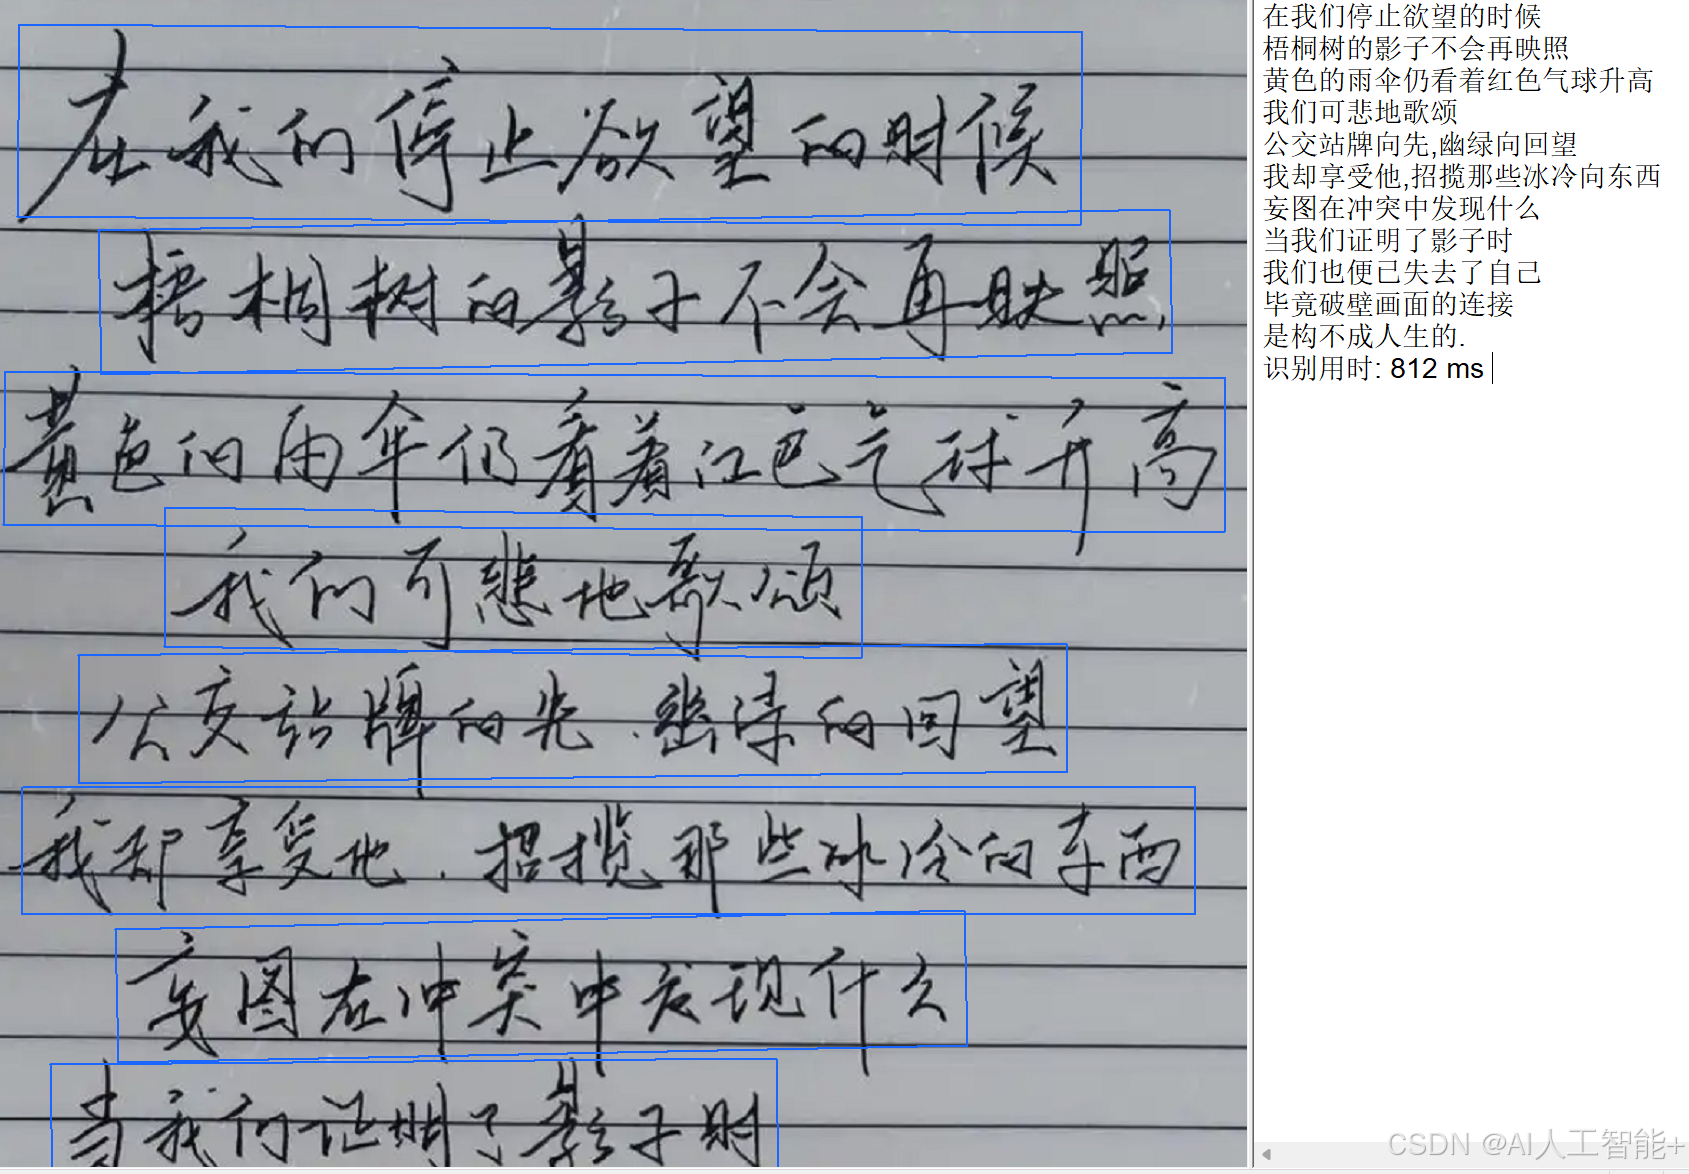 在我们停止欲望的时候
梧桐树的影子不会再映照
黄色的雨伞仍看着红色气球升高
我们可悲地歌颂
公交站牌的光,幽绿的回望
我却享受他,招揽那些冰冷的东西
妄图在冲突中发现什么
当我们证明了影子时
在我们停止欲望的时候
梧桐树的影子不会再映照
黄色的雨伞仍看着红色气球升高
我们可悲地歌颂
公交站牌向先,幽绿向回望
我却享受他,招揽那些冰冷向东西
妄图在冲突中发现什么
当我们证明了影子时
我们也便已失去了自己
毕竟破壁画面的连接
是构不成人生的.
识别用时: 812 ms
CSDN @AI人工智能+